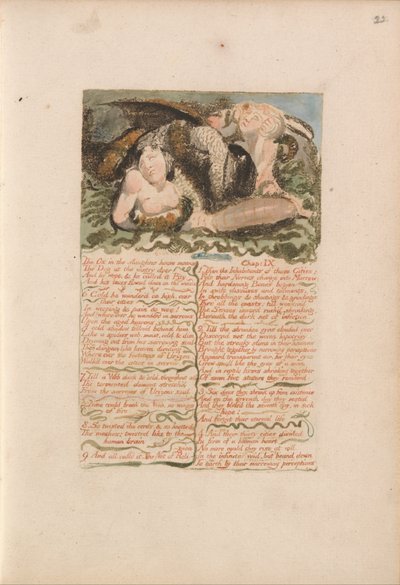 22
The Ox in the slaughter house moans
The Dog at the wintry door
And he wept, & he called it Pity
And his tears flowed down on the winds
6. Cold he wander'd on high, over
their cities
In weeping & pain & woe!
And where-ever he wander'd in sorrows
Upon the aged heavens
A cold shadow follow'd behind him
Like a spiders web, moist, cold, & dim
Drawing out from his sorrowing soul
The dungeon-like heaven dividing.
Where ever the footsteps of Urizen
Walk'd over the cities in sorrow.
7. Till a Web dark & cold, throughout all
The tormented element stretch'd
From the sorrows of Urizens soul
None could break the Web, no wings
of fire.
8. So twisted the cords, & so knotted
The meshes: twisted like to the
human brain
9. And all calld it, The Net of Reli
-gion
Chap: IX
1. Then the Inhabitants of those Cities:
Felt their Nerves change into Marrow
And hardening Bones began
In swift diseases and torments,
In throbbings & shootings & grindings
Thro' all the coasts; till weaken'd
The Senses inward rush'd shrinking,
Beneath the dark net of infection.
2. Till the shrunken eyes clouded over
Discernd not the woven hypocrisy
But the streaky slime in their heavens
Brought together by narrowing perceptions
Appeard transparent air; for their eyes
Grew small like the eyes of a man
And in reptile forms shrinking together
Of seven feet stature they remaind
3. Six days they shrunk up from existence
And on the seventh day they rested
And they bless'd the seventh day, in sick
hope:
And forgot their eternal life
4. And their thirty cities divided
In form of a human heart
No more could they rise at will
In the infinite void, but bound down
To earth by their narrowing perceptions